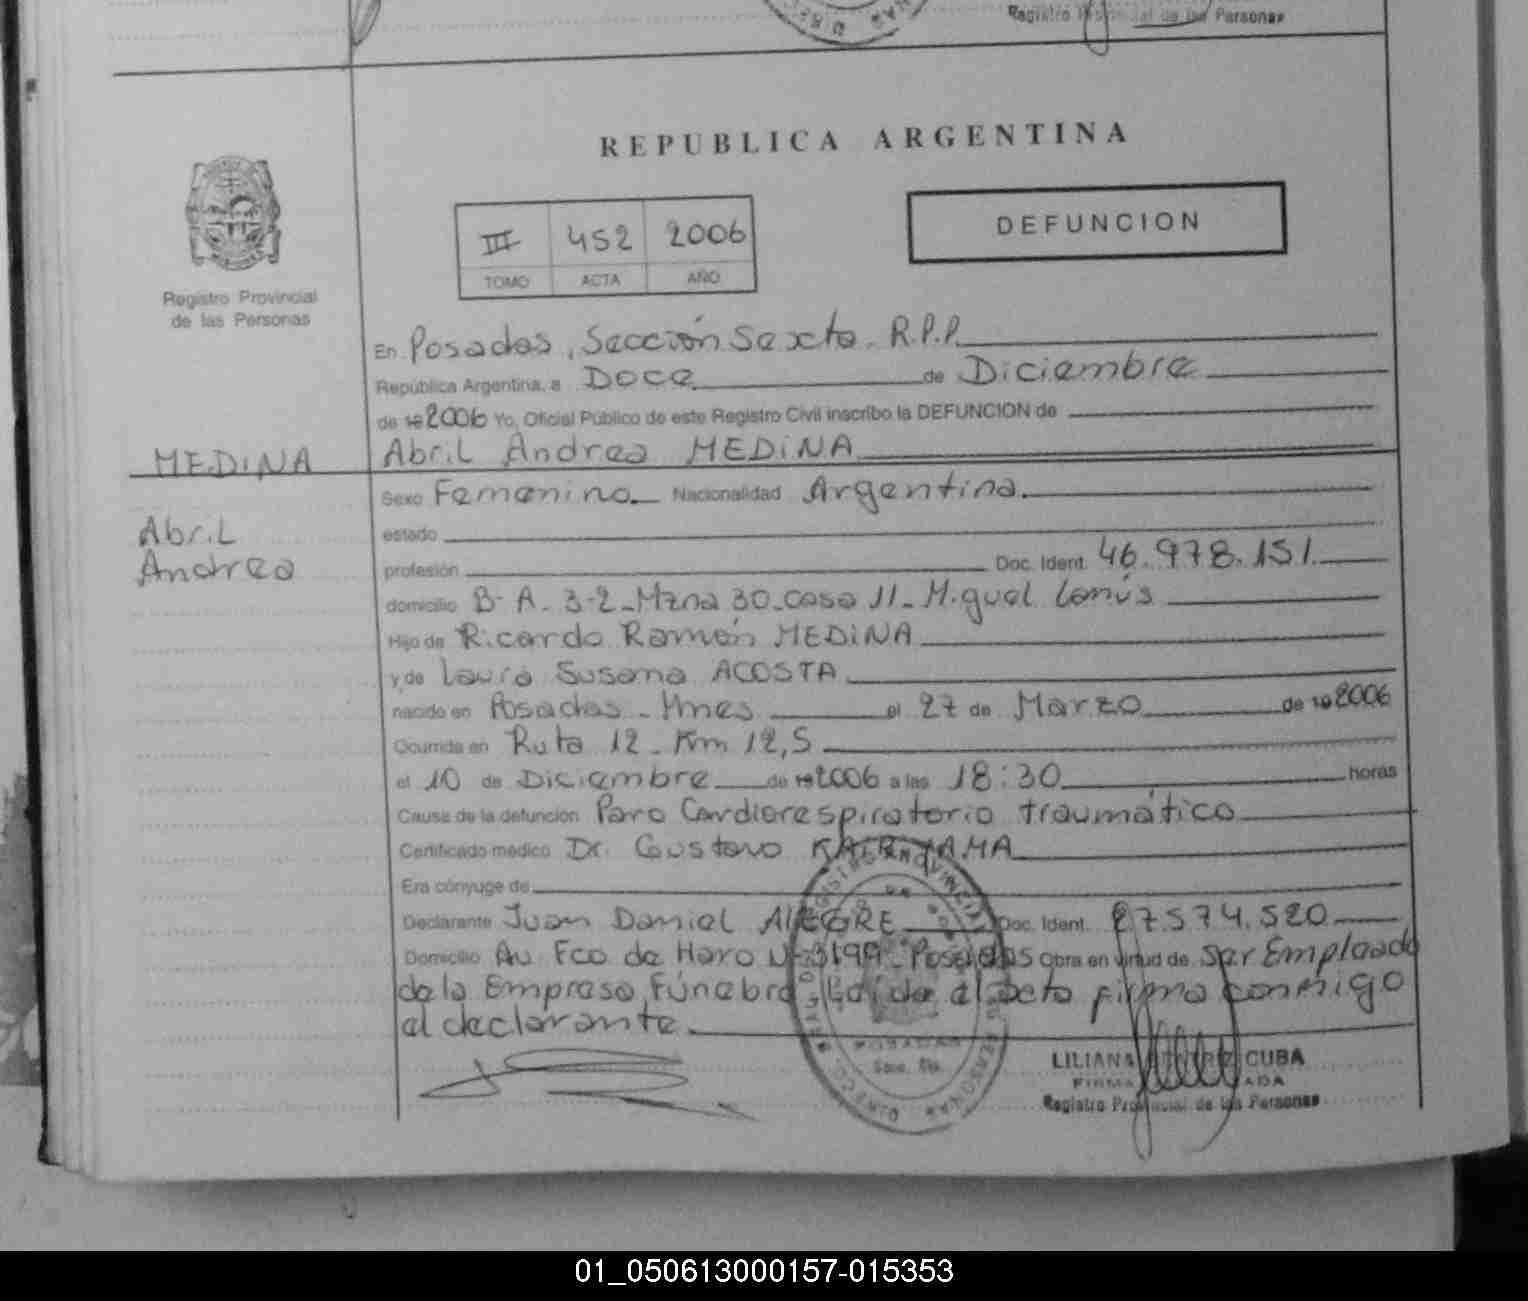 Registro Provincial de las Personas
REPUBLICA ARGENTINA
III 452 2006
TOMO ACTA AÑO
DEFUNCION
Registro Provincial
de las Personas
En Posadas, Sección Sexta. R.P.P.
República Argentina, a Doce de Diciembre
de 19 2006 Yo, Oficial Público de este Registro Civil inscribo la DEFUNCION de
MEDINA
Abril Andrea MEDINA
Sexo Femenino Nacionalidad Argentina.
Abril
Andrea
estado
profesión Doc. Ident. 46.978.151.
domicilio B- A- 3-2- Mzna 30- casa 11- Miguel Lanús
Hijo de Ricardo Ramón MEDINA
y de Laura Susana ACOSTA
nacido en Posadas - Mnes el 27 de Marzo de 19 2006
Ocurrida en Ruta 12 - Km 12,5
el 10 de Diciembre de 19 2006 a las 18:30 horas
Causa de la defunción Paro Cardiorespiratorio traumático
Certificado médico Dr. Gustavo
Era cónyuge de
Declarante Juan Daniel ALEGRE Doc. Ident. 27.574.520
Domicilio Av Fco de Haro Nº 3199- Posadas Obra en virtud de ser Empleado
de la Empresa Fúnebre, Leída el acta firma conmigo
el declarante.
POSADAS
LILIANA CUBA
Registro Provincial de las Personas
01_050613000157-015353